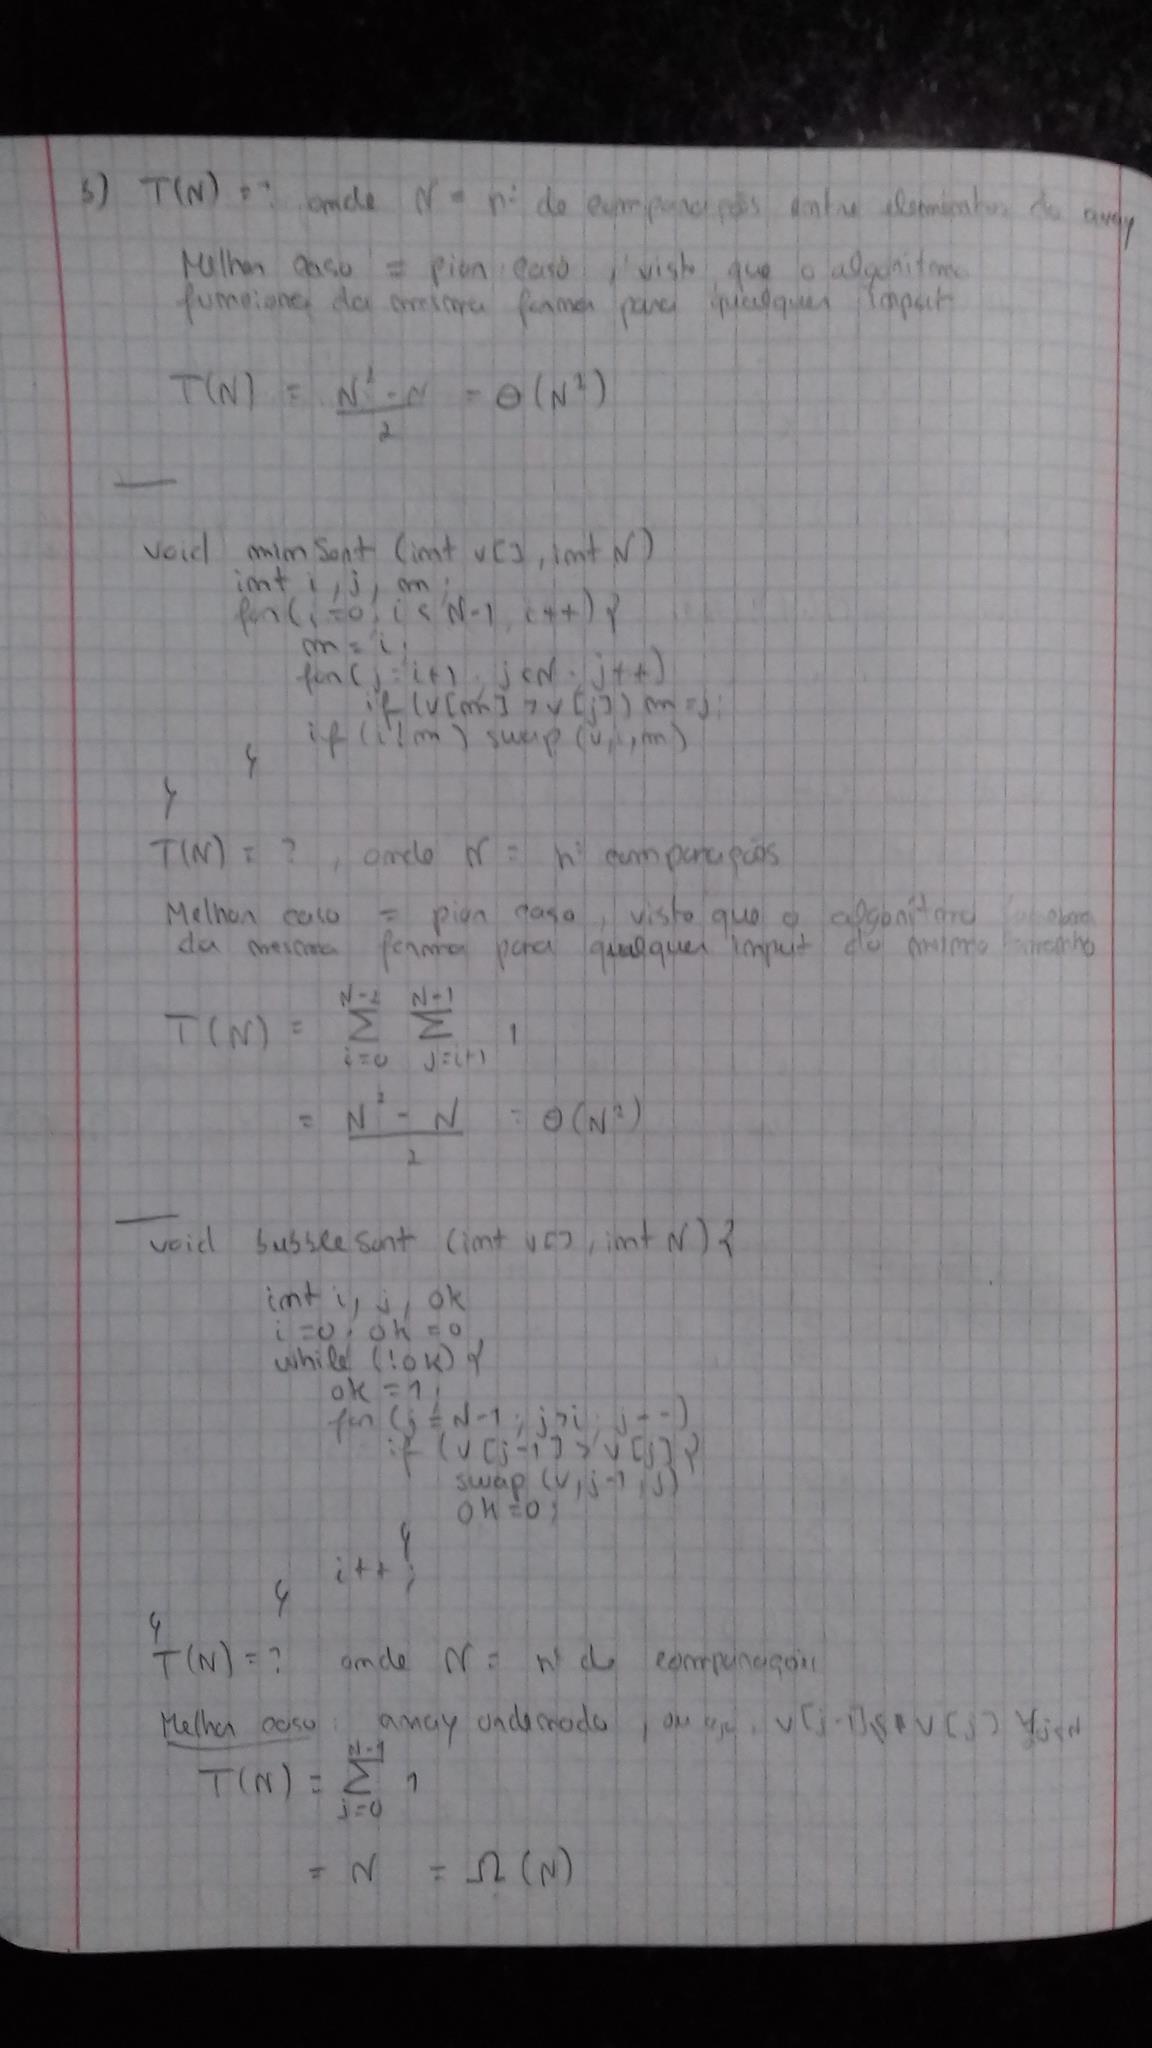 b) T(N) = ? onde N = nº de comparações entre elementos do array
Melhor caso = pior caso, visto que o algoritmo
funciona da mesma forma para qualquer input
T(N) = N² - N / 2 = Θ(N²)
void minSort (int v[], int N)
int i, j, m;
for(i=0; i < N-1; i++) {
m = i;
for(j=i+1; j<N; j++)
if (v[m] > v[j]) m=j;
if (i!m) swap (v,i,m)
}
}
T(N) = ?, onde N = nº comparações
Melhor caso = pior caso, visto que o algoritmo
da mesma forma para qualquer input do mesmo tamanho
T(N) = N-2 Σ i=0 N-1 Σ j=i+1 1
= N² - N / 2 = Θ(N²)
void bubbleSort (int v[], int N) {
int i, j, ok
i=0; ok=0
while (!ok) {
ok = 1;
for (j=N-1; j>i; j--)
if (v[j-1] > v[j] {
swap (v, j-1, j)
ok=0;
}
i++;
}
}
T(N) = ? onde N = nº de comparações
Melhor caso: array ordenado, ou seja,
T(N) = N-1 Σ j=0 1
= N = Ω(N)